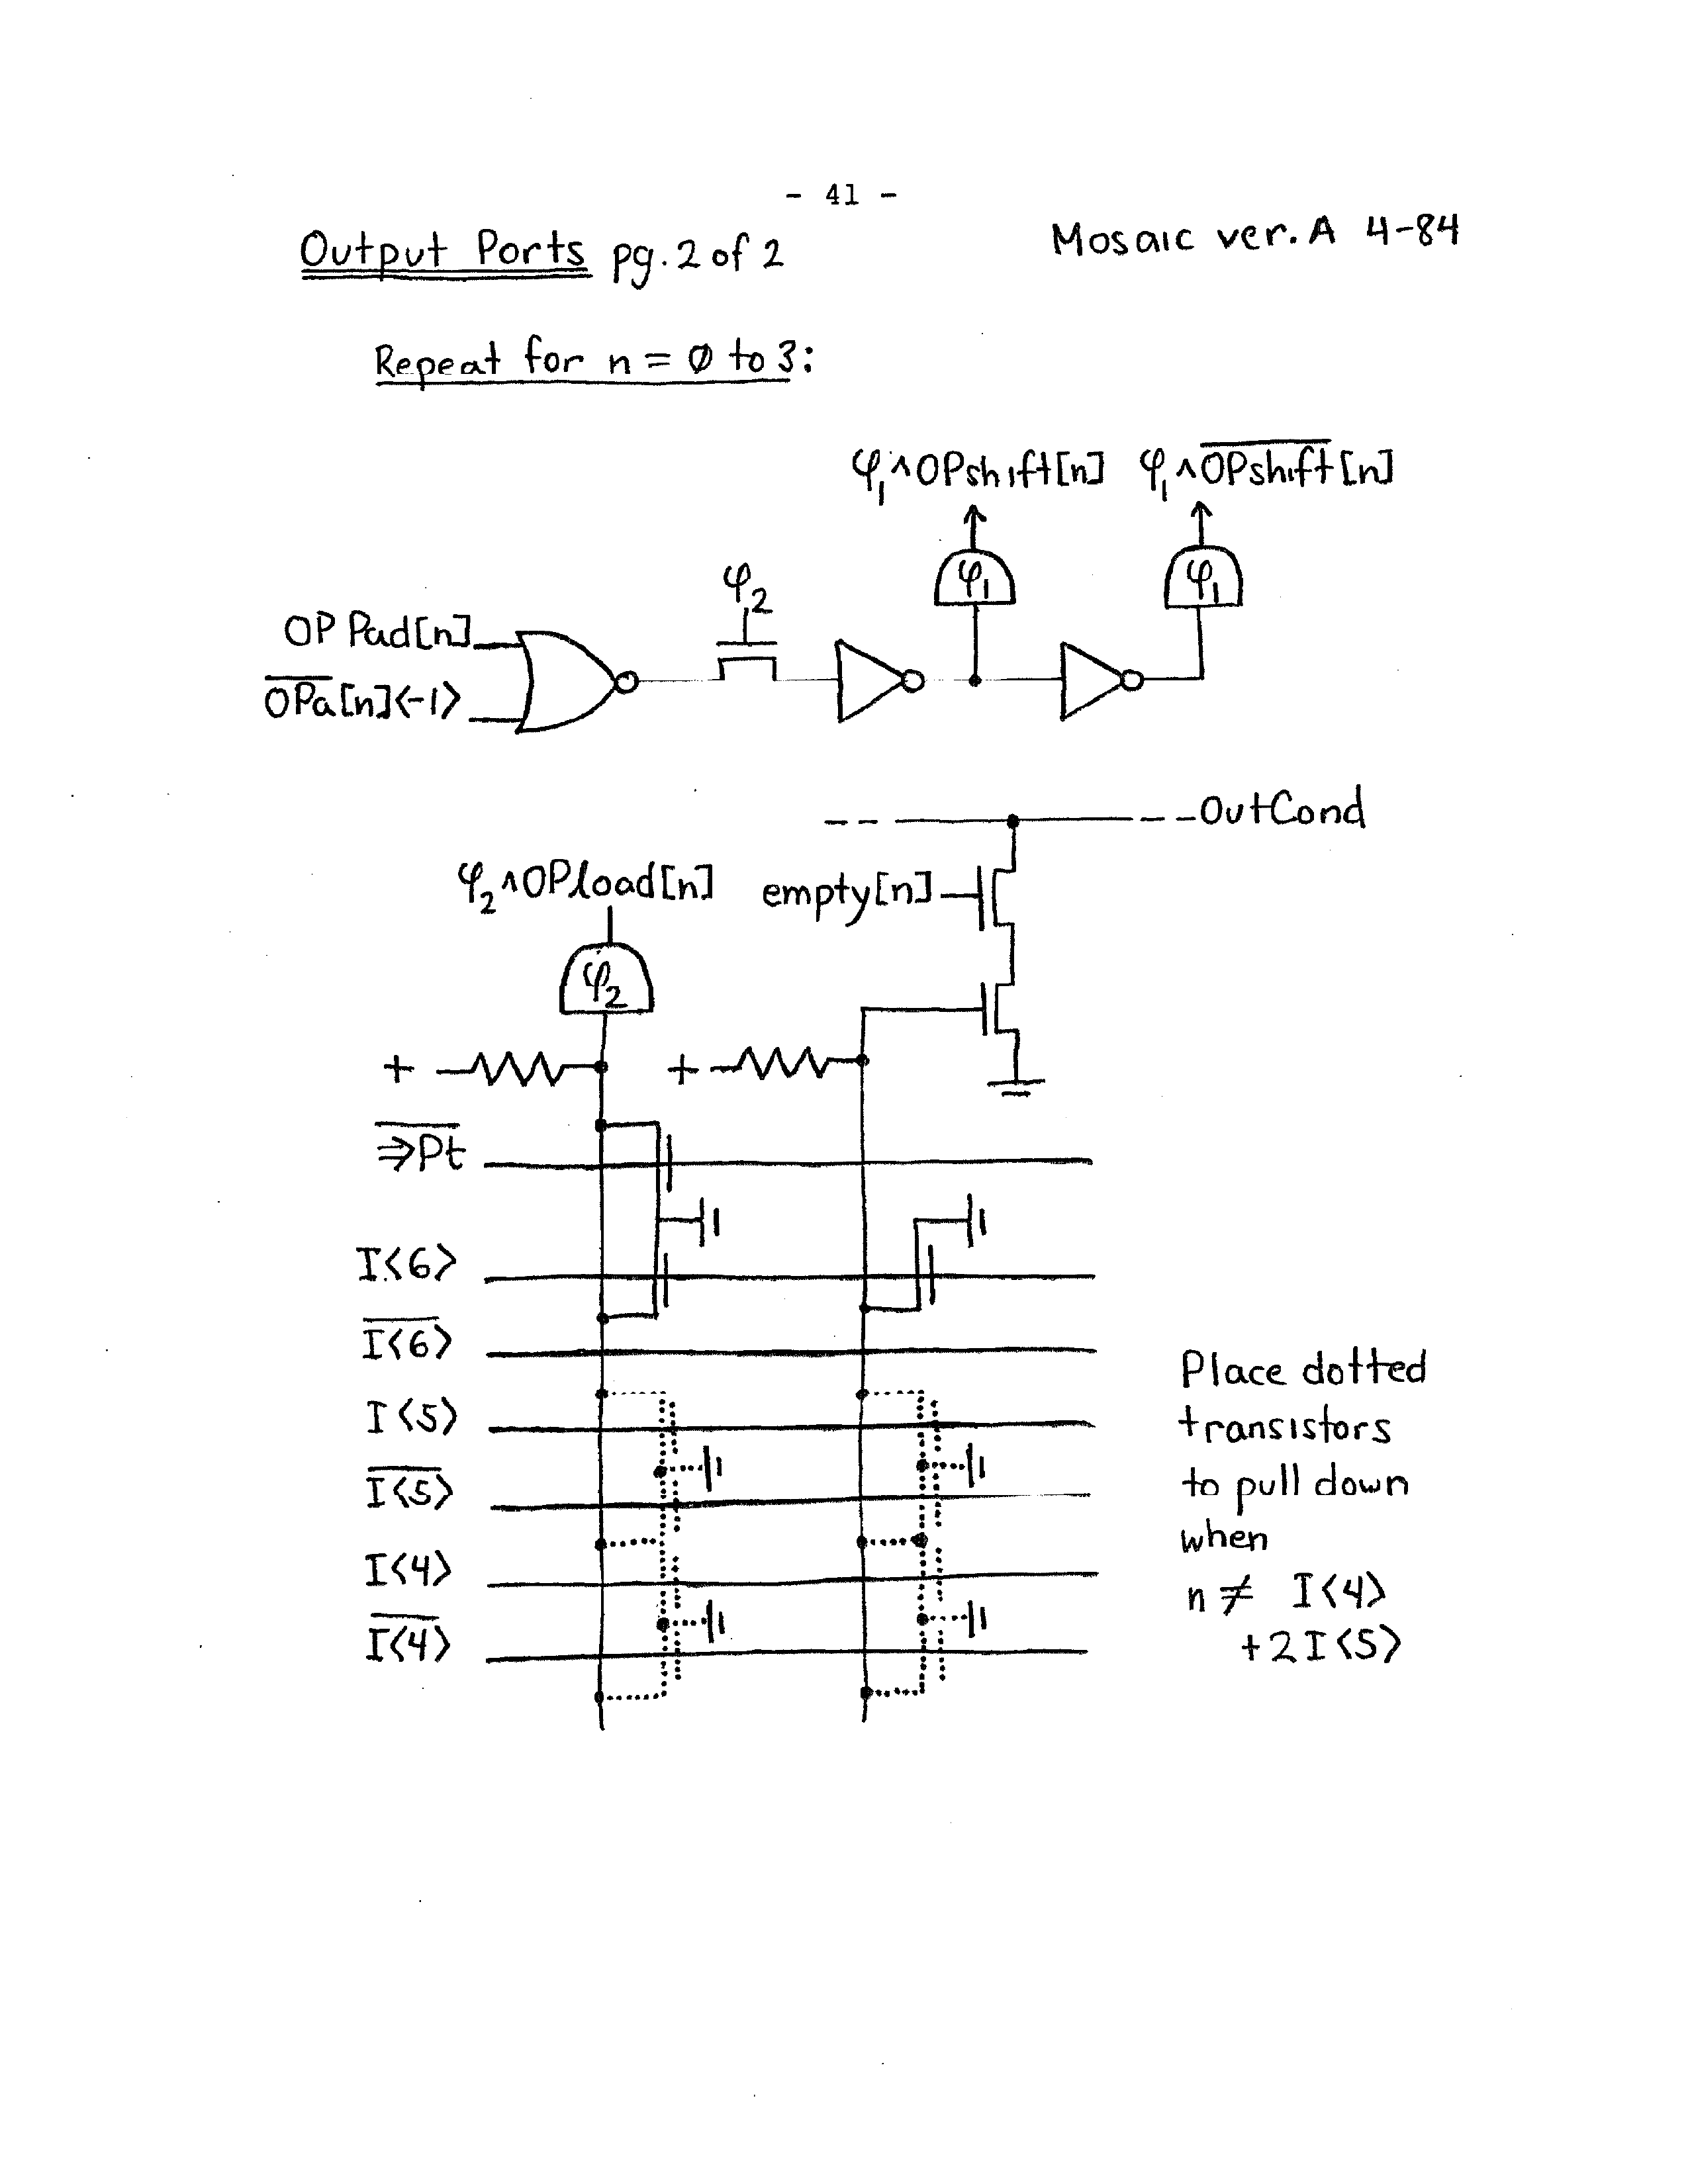 - 41 -
Output Ports pg. 2 of 2
Mosaic ver. A 4-84
Repeat for n = Ø to 3:
φ₁∧OPshift[n]
φ₁∧O̅P̅s̅h̅i̅f̅t̅[n]
φ₂
φ₁
φ₁
OP Pad[n]
O̅P̅a̅[n]<-1>
OutCond
φ₂∧OPload[n]
empty[n]
φ₂
+
+
⇒̅P̅t̅
I<6>
I̅<̅6̅>̅
I<5>
I̅<̅5̅>̅
I<4>
I̅<̅4̅>̅
Place dotted
transistors
to pull down
when
n ≠ I<4>
+2I<5>